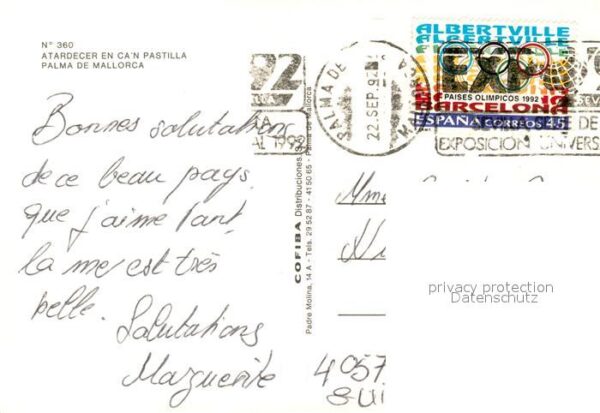 N° 360
ATARDECER EN CA'N PASTILLA
PALMA DE MALLORCA
Bonnes salutations
de ce beau pays
que j'aime tant,
la mer est très
belle.
Salutations
Marguerite
COFIBA Distribuciones, S.
Padre Molina, 14 A - Tels. 29 52 87 - 41 50 65 - Palma de Mallorca
92
AL 1992
22 SEP. 92
ALBERTVILLE
ALBERTVILLE
EXPO
PAISES OLIMPICOS 1992
BARCELONA
ESPAÑA CORREOS 45
DE
EXPOSICION UNIVERS
Mme
4057
SUI
privacy protection
Datenschutz